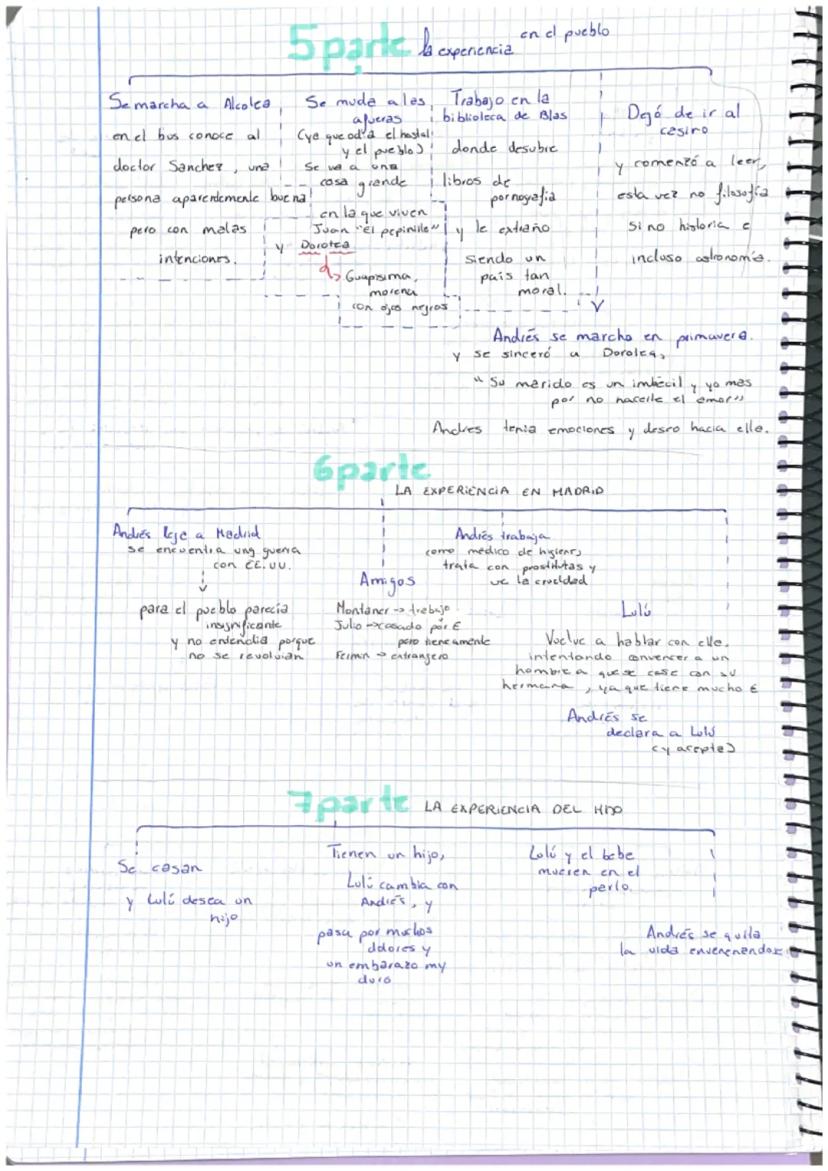 5 parte la experiencia en el pueblo
Se marcha a Alcolea
en el bus conoce al
doctor Sanchez, una
persona aparentemente buena
pero con malas
intenciones.
Se muda a las
afueras
(ya que odia el hostal
y el pueblo)
Se va a una
casa grande
en la que viven
Juan "El pepinillo"
y Dorotea
Guapisima,
morena
con ojos negros
Trabajo en la
biblioteca de Blas
donde desubre
libros de
pornografia
y le extraño
siendo un
país tan
moral.
Dejó de ir al
casino
y comenzó a leer,
esta vez no filosofía
sino historia e
incluso astronomía.
Andrés se marcho en primavera.
y se sinceró a Dorotea,
"Su marido es un imbécil y yo mas
por no hacerle el amor"
Andres tenia emociones y deseo hacia ella.
6 parte
LA EXPERIENCIA EN MADRID
Andrés llega a Madrid
se encuentra una guerra
con EE.UU.
para el pueblo parecía
insignificante
y no entendia porque
no se revolvian
Amigos
Montaner -> trabajo
Julio -> casado por €
pero tiene amante
Fermin -> extranjero
Andrés trabaja
como médico de higiene,
trata con prostitutas y
ve la crueldad
Lulú
Vuelve a hablar con ella.
intentando convencer a un
hombre a que se case con su
hermana, ya que tiene mucho €
Andrés se
declara a Lulú
(y acepta)
7 parte LA EXPERIENCIA DEL HIJO
Se casan
y Lulú desea un
hijo
Tienen un hijo,
Lulú cambia con
Andrés, y
pasa por muchos
dolores y
un embarazo my
duro
Lulú y el bebe
mueren en el
parto.
Andrés se quita
la vida envenenandose